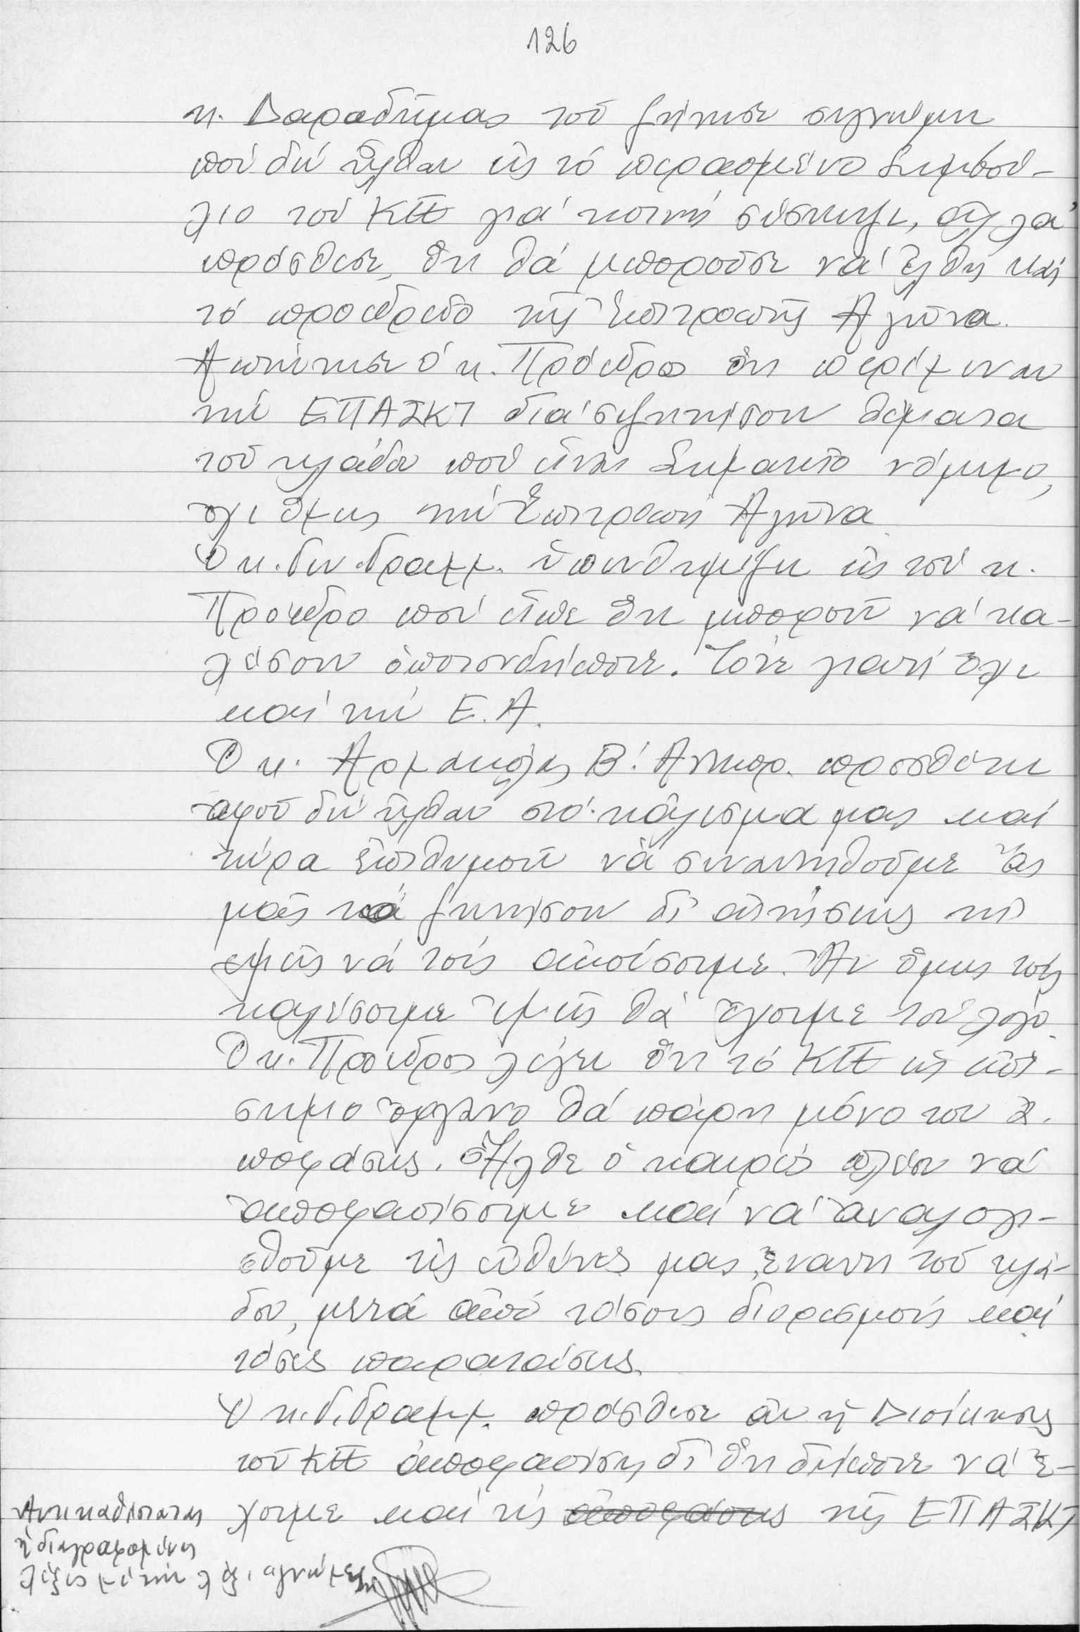 126
κ. Δαραδήμας τοῦ ζήτησε συγνώμη
πού δέν ἦλθαν εἰς τό περασμένο Συμβού-
λιο τοῦ ΚΠΕ γιά κοινή σύσκεψι, ἀλλά
πρόσθεσε, ὅτι θά μποροῦσε νά ἔλθη καί
τό προεδρεῖο τῆς Ἐπιτροπῆς Ἀγῶνα.
Ἀπήντησε ὁ κ. Πρόεδρος ὅτι περίμεναν
τήν ΕΠΑΣΚΤ διά συζήτησιν θέματα
τοῦ κλάδου πού εἶναι Σωματεῖο νόμιμο,
ὄχι ὅμως τήν Ἐπιτροπή Ἀγῶνα
Ὁ κ. Γεν. Γραμμ. ὑπενθυμίζει εἰς τόν κ.
Πρόεδρο πού εἶπε ὅτι μπορεῖ νά κα-
λέσουν ὁποιονδήποτε. Τότε γιατί ὄχι
καί τήν Ε.Α.
Ὁ κ. Ἀρμακόλας Β! Ἀντιπρ. προσθέτει
ἀφοῦ δέν ἦλθαν στό κάλεσμα μας καί
τώρα ἐπιθυμοῦν νά συναντηθοῦμε ἄς
μᾶς τό ζητήσουν δι' αἰτήσεως καί
ἐμεῖς νά τούς ἀκούσουμε. Ἄν ὅμως τούς
καλέσουμε ἐμεῖς θά ἔχουμε τόν λόγο.
Ὁ κ. Πρόεδρος λέγει ὅτι τό ΚΠΕ ὡς ἐπί-
σημο ὄργανο θά πάρη μόνο του ἀ-
ποφάσεις. Ἦλθε ὁ καιρός πλέον νά
ἀποφασίσουμε καί νά ἀναλογι-
σθοῦμε τίς εὐθύνες μας ἔναντι τοῦ κλά-
δου, μετά ἀπό τόσους διορισμούς καί
τόσες παραιτήσεις.
Ὁ κ. Γ. Γραμμ. πρόσθεσε ἄν ἡ Διοίκησις
τοῦ ΚΠΕ ἀποφασίση δι' ὅτι δήποτε νά ἔ-
χουμε καί τίς ἀποφάσεις τῆς ΕΠΑΣΚΤ
Ἀντικαθίσταται
ἡ διαγραφομένη
λέξις μέ τήν λέξι γνώμες